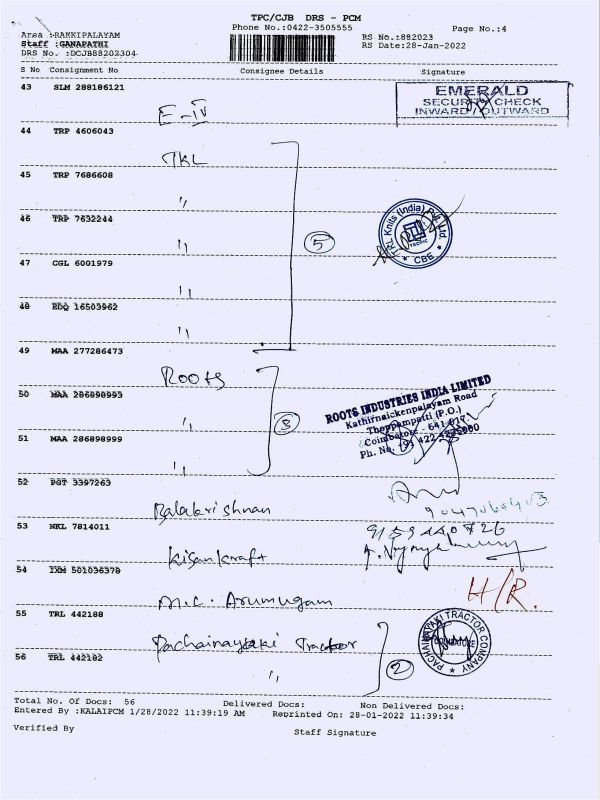 TPC/CJB DRS - PCM
Phone No.:0422-3505555
Page No.:4
Area :RAKKIPALAYAM
Staff :GANAPATHI
DRS No. :DCJB88202304
RS No.:882023
RS Date:28-Jan-2022
S No Consignment No Consignee Details Signature
43 SLM 288186121
E-IV
EMERALD
SECURITY CHECK
INWARD / OUTWARD
44 TRP 4606043
TKL
45 TRP 7686608
"
46 TRP 7632244
"
5
TRL Knits (India) Pvt. Ltd.
* CBE *
47 CGL 6001979
"
48 BDQ 16503962
"
49 MAA 277286473
Roots
50 MAA 286898993
"
3
ROOTS INDUSTRIES INDIA LIMITED
Kathirnaickenpalayam Road
Thoppampatti (P.O.)
Coimbatore - 641 017
Ph. No.
51 MAA 286898999
"
52 PGT 3397263
Balakrishnan
53 NKL 7814011
Kisankraft
9159440726
54 IXM 501036378
M.C. Arumugam
H/R.
55 TRL 442188
Pachainayaki Tractor
PACHAINAYAKI TRACTOR COMPANY
COIMBATORE
56 TRL 442182
"
2
Total No. Of Docs: 56 Delivered Docs: Non Delivered Docs:
Entered By :KALAIPCM 1/28/2022 11:39:19 AM Reprinted On: 28-01-2022 11:39:34
Verified By Staff Signature